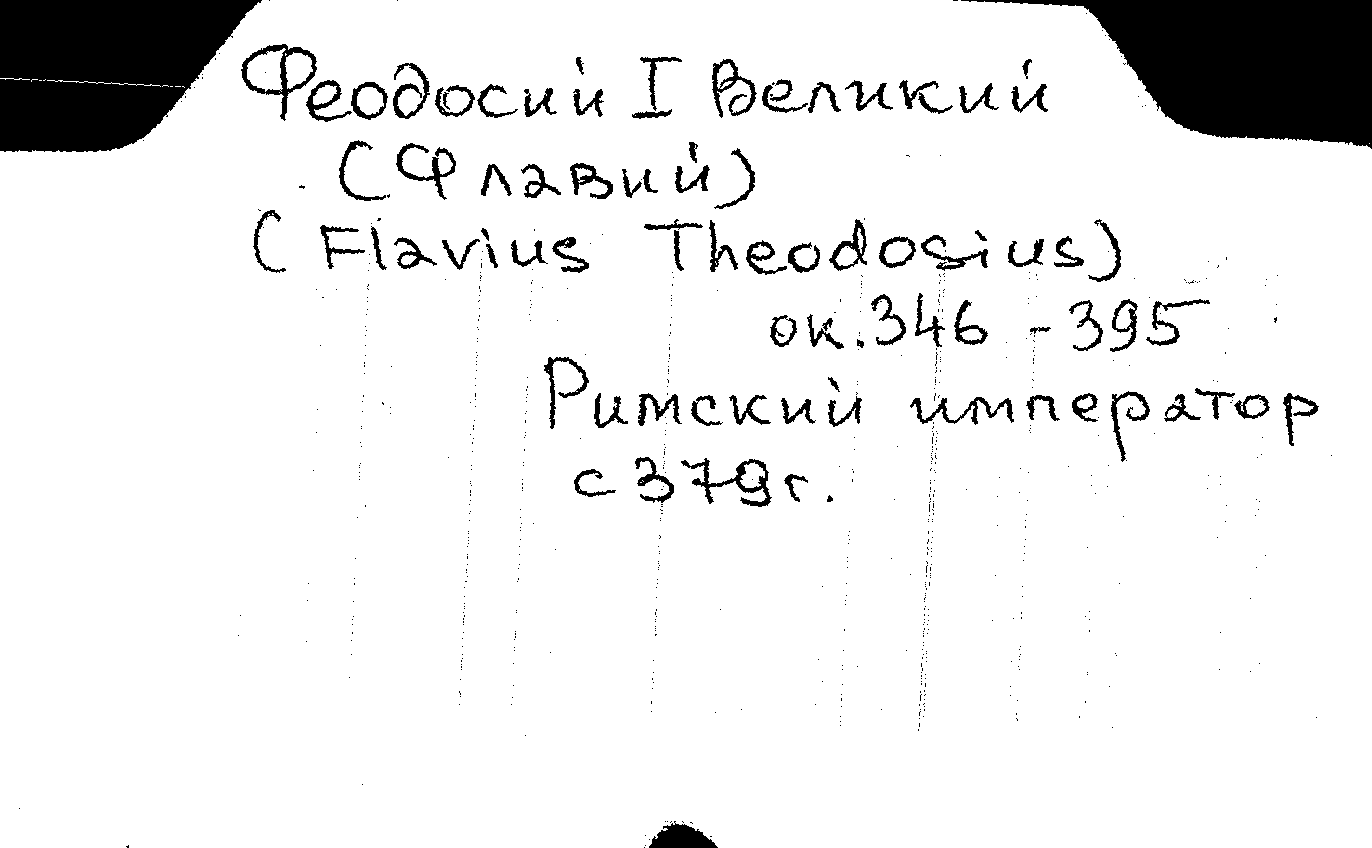 Феодосий I Великий
(Флавий)
(Flavius Theodosius)
ок. 346 - 395
Римский император
с 379 г.